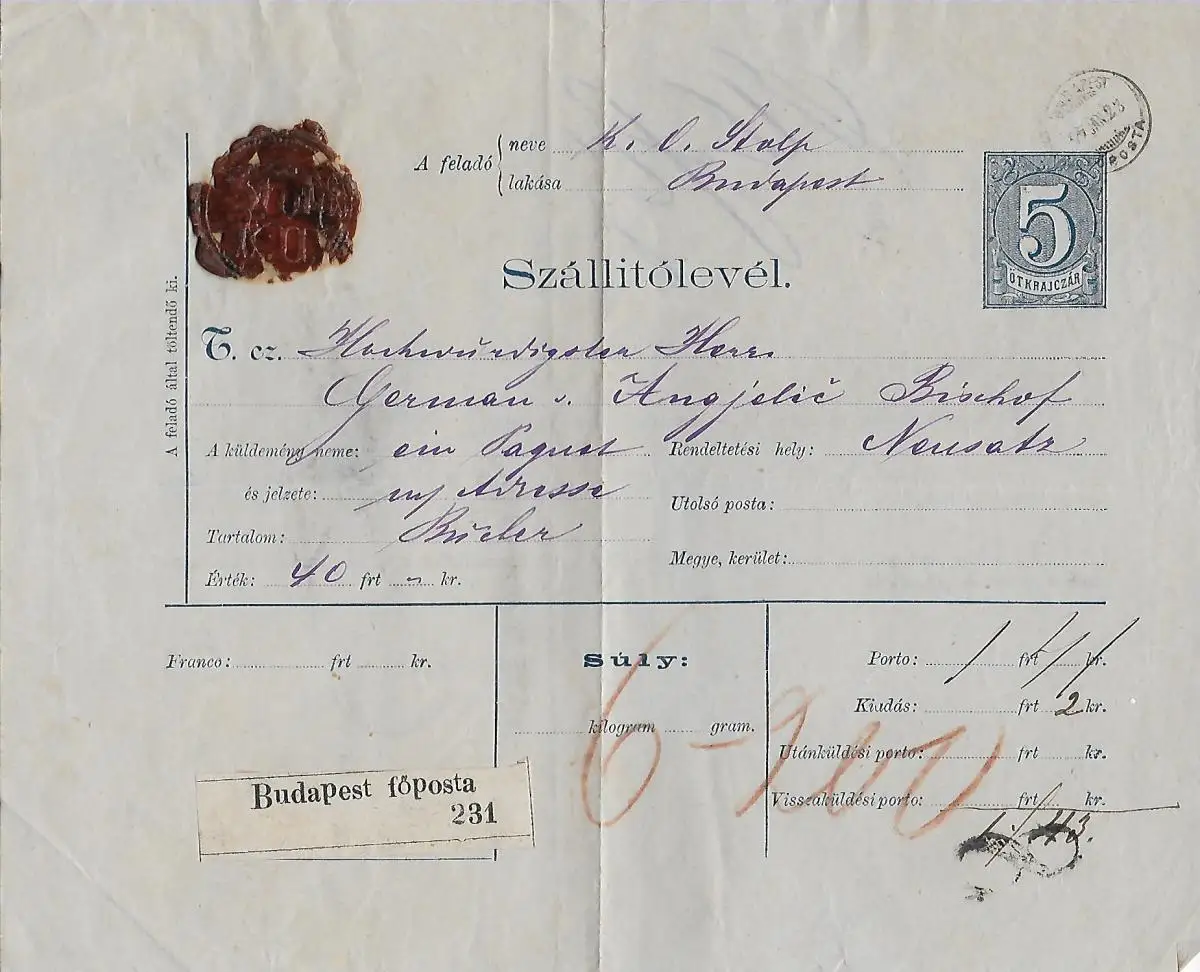 BUDAPEST
JAN 23
POSTA
A feladó
neve K. O. Stolp
lakása Budapest
5
ÖT KRAJCZÁR
K. O.
Szállitólevél.
A feladó által töltendő ki.
T. cz. Hochwürdigsten Herrn
German v. Angjelić Bischof
A küldemény neme: ein Paquet Rendeltetési hely: Neusatz
és jelzete: Adresse
Utolsó posta:
Tartalom: Bücher
Megye, kerület:
Érték: 40 frt ~ kr.
Franco: frt kr.
Súly:
kilogram gram.
6-200
Porto: 1 frt kr.
Kiadás: frt 2 kr.
Utánküldési porto: frt kr.
Visszaküldési porto: frt kr.
43.
Budapest főposta
231